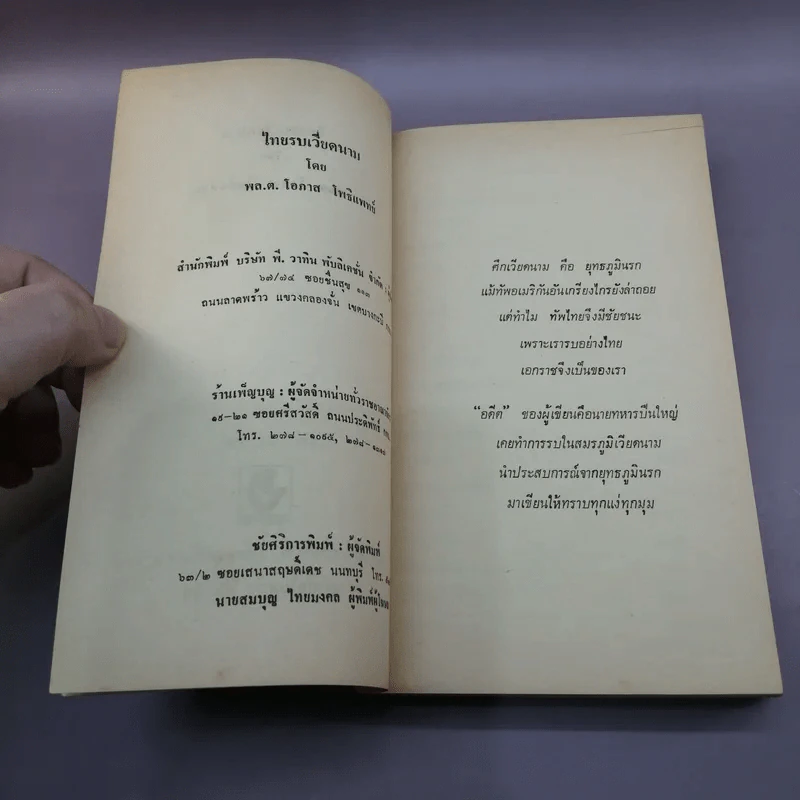 ไทยรบเวียดนาม
โดย
พล.ต. โอภาส โพธิแพทย์
สำนักพิมพ์ บริษัท พี. วาทิน พับลิเคชั่น จำกัด
๖๗/๗๔ ซอยชื่นสุข
ถนนลาดพร้าว แขวงคลองจั่น เขตบางกะปิ
ร้านเพ็ญบุญ : ผู้จัดจำหน่ายทั่วราชอาณาจักร
๑๙-๒๑ ซอยศรีสวัสดิ์ ถนนประดิพัทธ์
โทร. ๒๗๘-๑๐๙๕, ๒๗๘-
ชัยศิริการพิมพ์ : ผู้จัดพิมพ์
๖๓/๒ ซอยเสนาสฤษดิ์เดช นนทบุรี โทร.
นายสมบุญ ไทยมงคล
ศึกเวียดนาม คือ ยุทธภูมินรก
แม้ทัพอเมริกันอันเกรียงไกรยังล่าถอย
แต่ทำไม ทัพไทยจึงมีชัยชนะ
เพราะเรารบอย่างไทย
เอกราชจึงเป็นของเรา
“อดีต” ของผู้เขียนคือนายทหารปืนใหญ่
เคยทำการรบในสมรภูมิเวียดนาม
นำประสบการณ์จากยุทธภูมินรก
มาเขียนให้ทราบทุกแง่ทุกมุม